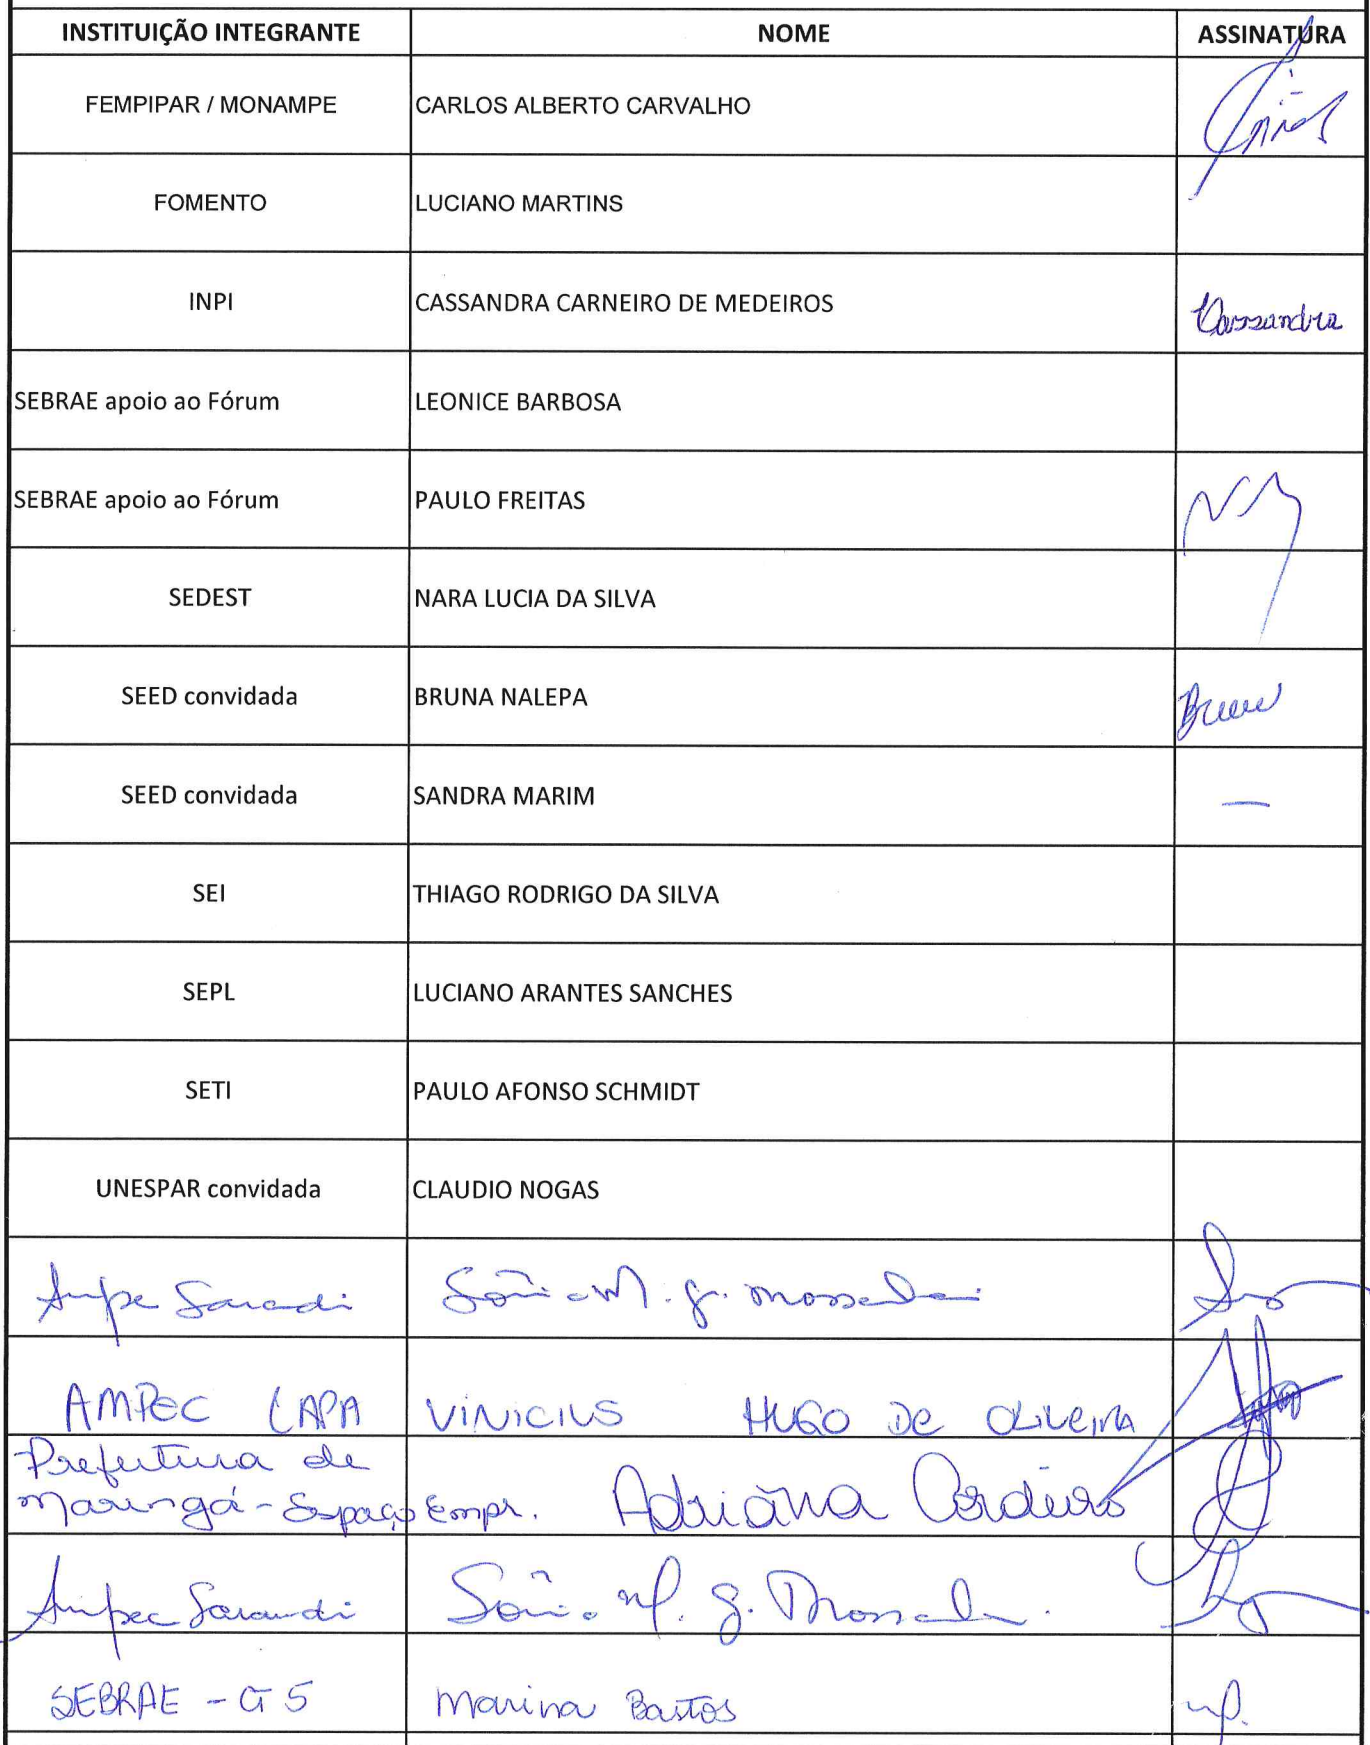 INSTITUIÇÃO INTEGRANTE NOME ASSINATURA
FEMPIPAR / MONAMPE CARLOS ALBERTO CARVALHO
FOMENTO LUCIANO MARTINS
INPI CASSANDRA CARNEIRO DE MEDEIROS Cassandra
SEBRAE apoio ao Fórum LEONICE BARBOSA
SEBRAE apoio ao Fórum PAULO FREITAS
SEDEST NARA LUCIA DA SILVA
SEED convidada BRUNA NALEPA
SEED convidada SANDRA MARIM —
SEI THIAGO RODRIGO DA SILVA
SEPL LUCIANO ARANTES SANCHES
SETI PAULO AFONSO SCHMIDT
UNESPAR convidada CLAUDIO NOGAS
Ampe Sarandi Sônia M. G.
AMPEC LAPA VINICIUS HUGO DE OLIVEIRA
Prefeitura de
Maringá - Espaço Empr. Adriana Cordeiro
Ampec Sarandi Sônia M. G.
SEBRAE - G5 Marina Bastos